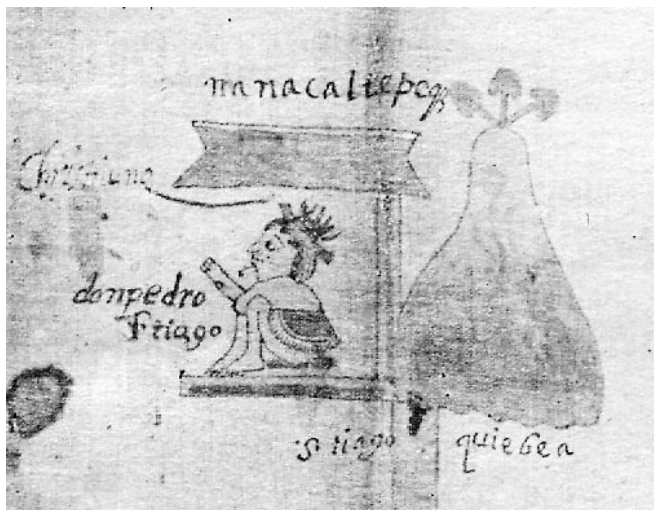 manacaltepeq
Christiano
don pedro
stiago
stiago quiebea